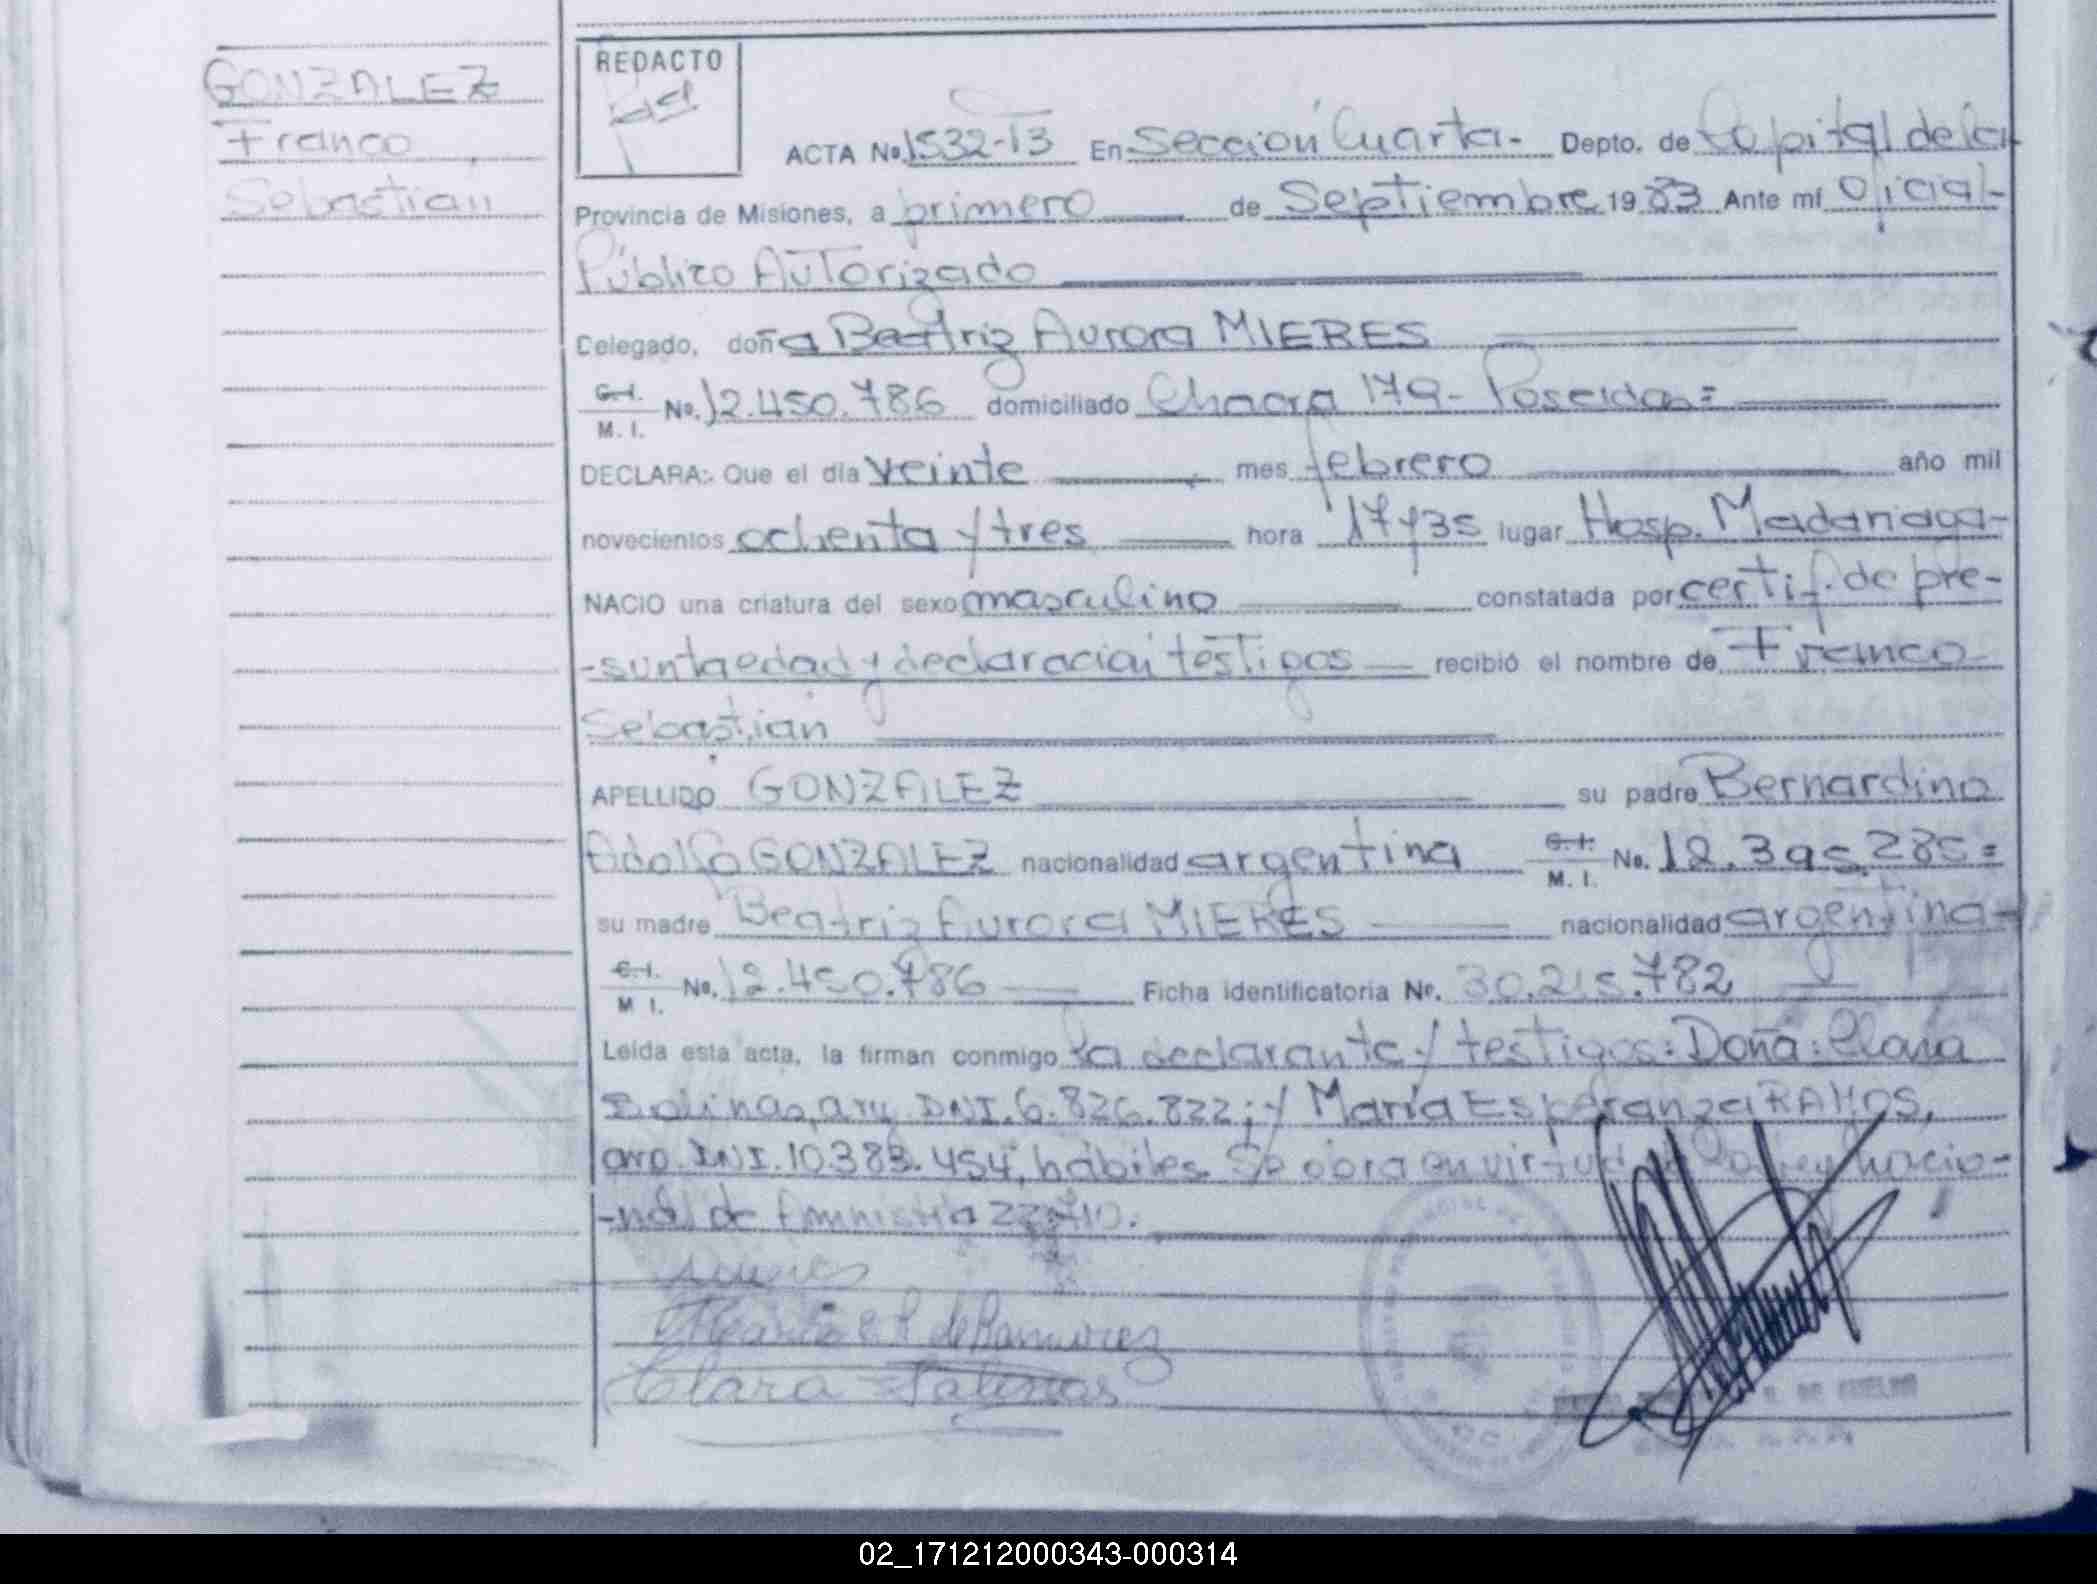 GONZALEZ
Franco
Sebastián
REDACTO
ACTA No. 1532-T3 En Sección Cuarta- Depto. de Capital de la
Provincia de Misiones, a primero de Septiembre 1983 Ante mí Oficial-
Público Autorizado
Delegado, doña Beatriz Aurora MIERES
C.I. M.I. No. 12.450.786 domiciliado Chacra 179- Poseidas=
DECLARA: Que el día veinte mes febrero año mil
novecientos ochenta y tres hora 17y35 lugar Hosp. Madariaga-
NACIO una criatura del sexo masculino constatada por certif. de pre-
-sunta edad y declaración testigos recibió el nombre de Franco
Sebastián
APELLIDO GONZALEZ su padre Bernardino
Adolfo GONZALEZ nacionalidad argentina C.I. M.I. No. 12.395.285=
su madre Beatriz Aurora MIERES nacionalidad argentina-
C.I. M.I. No. 12.450.786 Ficha identificatoria No. 30.215.782
Leída esta acta, la firman conmigo la declarante y testigos: Doña: Clara
Salinas, arg. DNI. 6.826.822; y María Esperanza RAMOS,
arg. DNI. 10.383.454, hábiles. Se obra en virtud de la ley nacio-
-nal de Amnistía 22.710.
Mieres
María E R de Ramirez
Clara Salinas
02_171212000343-000314